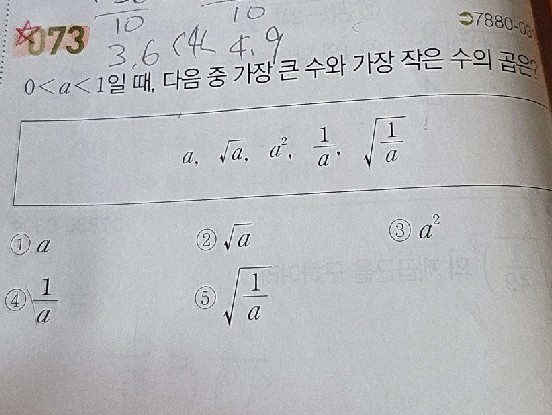 10 10
073
3.6 < 4 < 4.9
0<a<1일 때, 다음 중 가장 큰 수와 가장 작은 수의 곱은?
a, √a, a², 1/a, √(1/a)
① a ② √a ③ a²
④ 1/a ⑤ √(1/a)